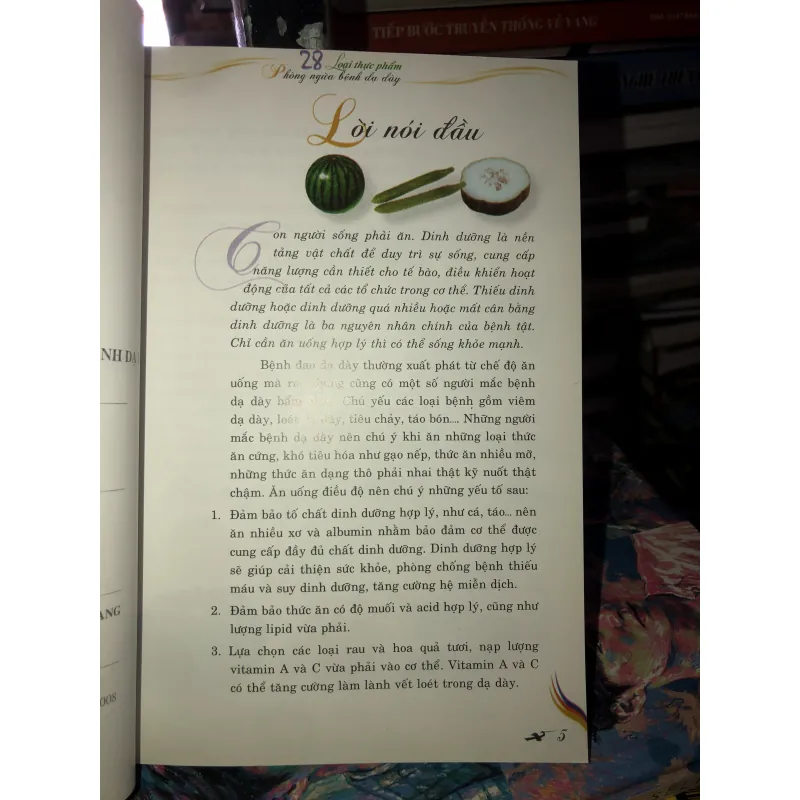 TIẾP BƯỚC TRUYỀN THỐNG VẺ VANG
28 Loại thực phẩm
Phòng ngừa bệnh dạ dày
Lời nói đầu
Con người sống phải ăn. Dinh dưỡng là nền
tảng vật chất để duy trì sự sống, cung cấp
năng lượng cần thiết cho tế bào, điều khiển hoạt
động của tất cả các tổ chức trong cơ thể. Thiếu dinh
dưỡng hoặc dinh dưỡng quá nhiều hoặc mất cân bằng
dinh dưỡng là ba nguyên nhân chính của bệnh tật.
Chỉ cần ăn uống hợp lý thì có thể sống khỏe mạnh.
Bệnh đau dạ dày thường xuất phát từ chế độ ăn
uống mà ra, cũng có một số người mắc bệnh
dạ dày Chủ yếu các loại bệnh gồm viêm
dạ dày, loét dạ dày, tiêu chảy, táo bón.... Những người
mắc bệnh dạ dày nên chú ý khi ăn những loại thức
ăn cứng, khó tiêu hóa như gạo nếp, thức ăn nhiều mỡ,
những thức ăn dạng thô phải nhai thật kỹ nuốt thật
chậm. Ăn uống điều độ nên chú ý những yếu tố sau:
1. Đảm bảo tố chất dinh dưỡng hợp lý, như cá, táo... nên
ăn nhiều xơ và albumin nhằm bảo đảm cơ thể được
cung cấp đầy đủ chất dinh dưỡng. Dinh dưỡng hợp lý
sẽ giúp cải thiện sức khỏe, phòng chống bệnh thiếu
máu và suy dinh dưỡng, tăng cường hệ miễn dịch.
2. Đảm bảo thức ăn có độ muối và acid hợp lý, cũng như
lượng lipid vừa phải.
3. Lựa chọn các loại rau và hoa quả tươi, nạp lượng
vitamin A và C vừa phải vào cơ thể. Vitamin A và C
có thể tăng cường làm lành vết loét trong dạ dày.
5
NH DẠ
ANG
008